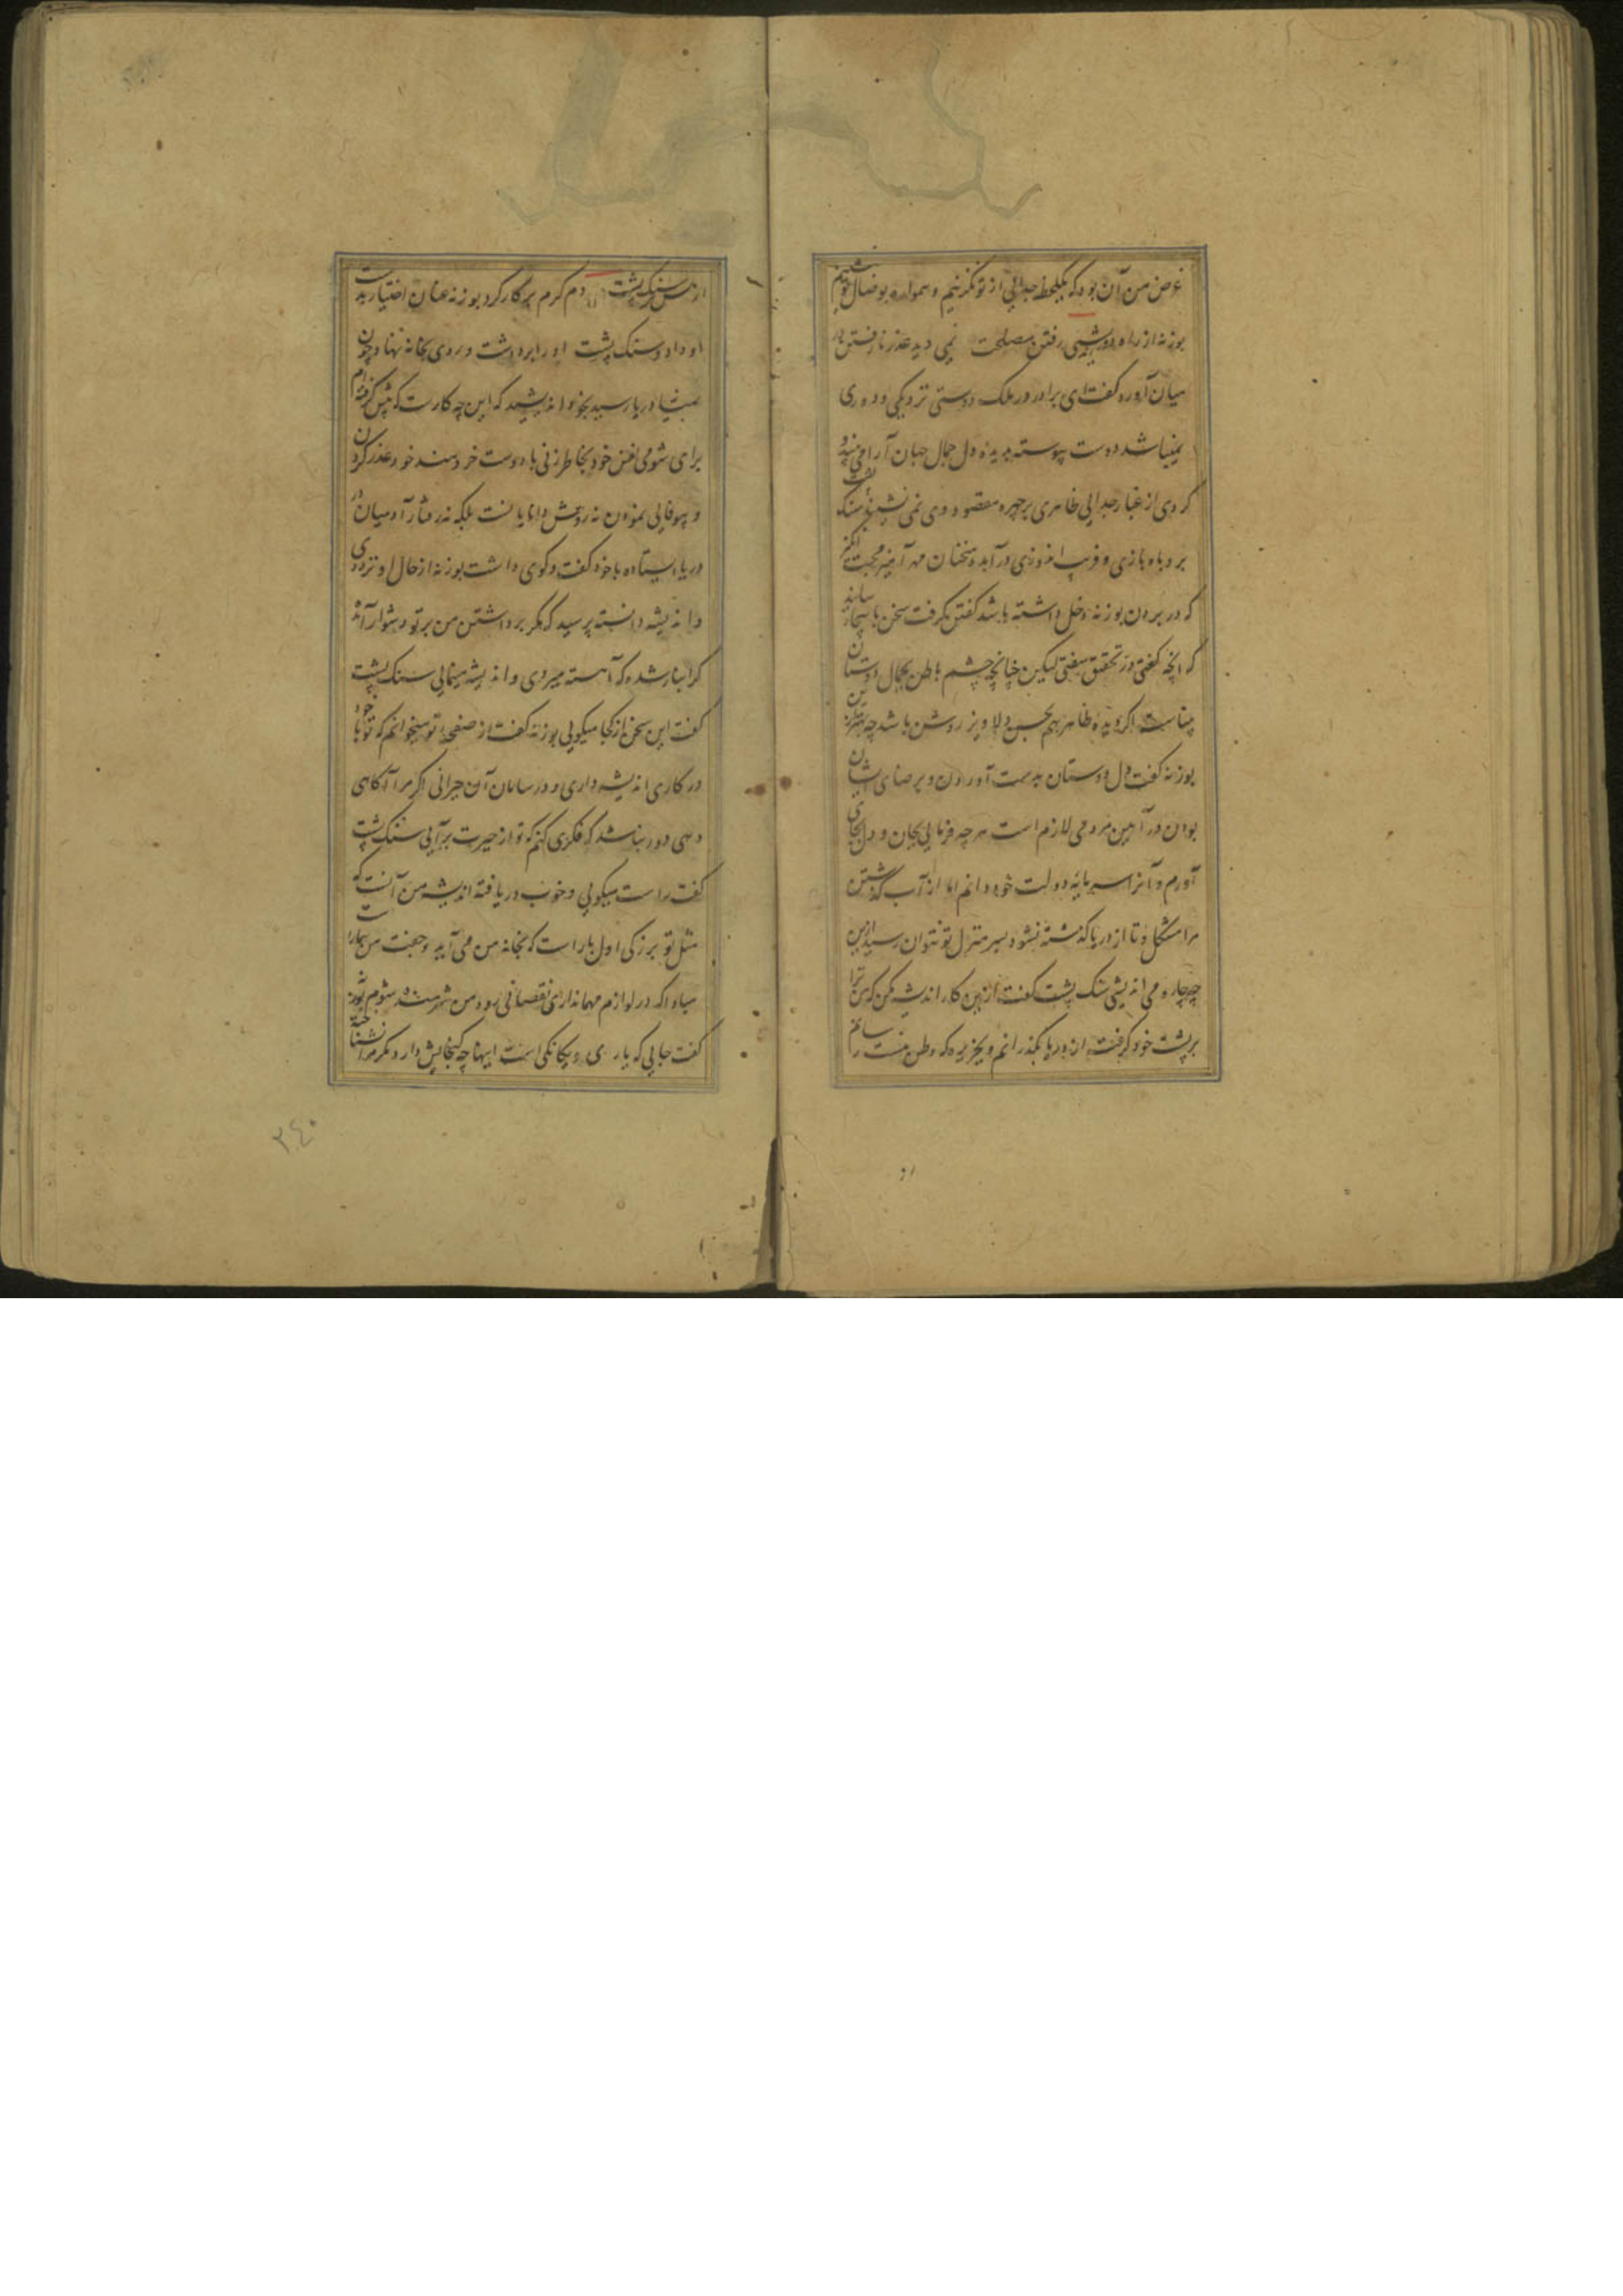 غرض من آن بود که یکلحظه جدایی از تو نگزینم و همواره بوصال تو نشینم
بوزنه از راه دوراندیشی رفتن مصلحت نمی دید عذر نارفتن در
میان آورد گفت ای برادر در ملک دوستی نزدیکی و دوری
نمیباشد دوست پیوسته بدیده دل جمال جهان آرا می بیند و
کردی از غبار جدایی ظاهری بر چهره مقصود وی نمی نشیند سنک پشت
بروباه بازی و فریب افروزی درآمد و سخنان مهرآمیز محبت انگیز
که در بردن بوزنه دخل داشته باشد گفتن گرفت سخن باینجا رسانید
که انچه گفتی در تحقیق سفتی لیکن چنانچه چشم باطن بجمال دوستان
بیناست اگر دیده ظاهر هم بحسن دلاویز روشن باشد چه بهتر ازین
بوزنه گفت دل دوستان بدست آوردن و برضای ایشان
بودن در آیین مردمی لازم است هرچه فرمایی بجان و دل بجای
آورم و آنرا سرمایه دولت خود دانم اما از آب گذشتن
مرا مشکل و تا از دریا گذشته نشود بسرمنزل تو نتوان رسید ازین
چه چاره می اندیشی سنک پشت گفت ازین کار اندیشه مکن که من ترا
بر پشت خود گرفته از دریا بگذرانم و بجزیره که وطن منست رسانم
از بس سنک پشت دم گرم بر کار کرد بوزنه عنان اختیار بدست
او داد و سنک پشت او را برداشت و روی بخانه نهاد چون
بمیان دریا رسید بخود اندیشید که این چه کارست که پیش گرفته ام
برای شومی نفس خود بخاطر زنی با دوست خردمند خود عذر کردن
و بیوفایی نمودن نه روش دانایانست بلکه نه رفتار آدمیان در
دریا ایستاده با خود گفت و گوی داشت بوزنه از حال او ترددی
و اندیشه دانسته پرسید که مگر برداشتن من بر تو دشوار آمد
گرانبار شده که آهسته میروی و اندیشه مینمایی سنک پشت
گفت این سخن از کجا میگویی بوزنه گفت از صفحه تو میخوانم که تو با خود
در کاری اندیشه داری و در سامان آن حیرانی اگر مرا آگاهی
دهی دور نباشد که فکری کنم که تو از حیرت برآیی سنک پشت
گفت راست میگویی و خوب دریافته اندیشه من آنست که
مثل تو بزرگی اول بار است که بخانه من می آید و جفت من بیمار است
مبادا که در لوازم مهمانداری نقصانی رود و من شرمنده شوم بوزنه
گفت جایی که یاری و یگانگی است اینها چه گنجایش دارد مگر مرا نشناخته
۳۴۰